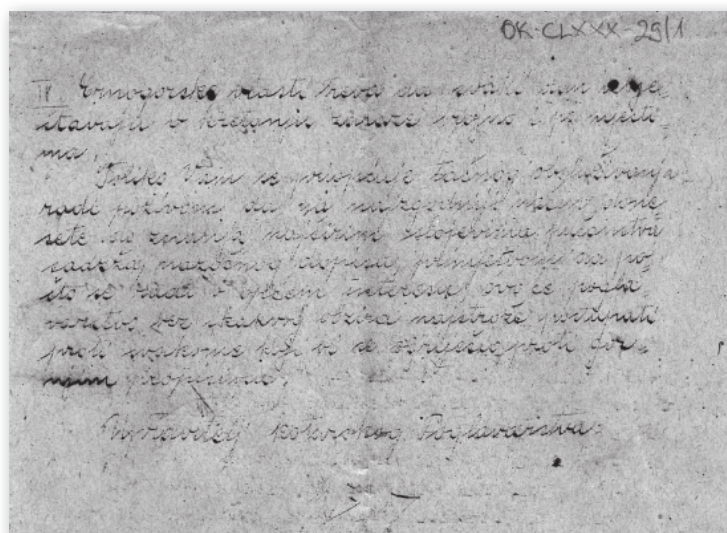 OK-CLXXX-29/1
IV Crnogorske vlasti treba da svaki dan
stavaju o kretanju zaraze brojno i po mjesti-
ma.
Toliko Vam se priopćuje tačnog obsluživanja
radi pozivom da na najzgodniji način done-
sete do znanja najširim slojevima pučanstva
sadržaj nazočnog dopisa, primjetbom da po-
što se radi o općem interesu ovo će pogla-
varstvo bez ikakvog obzira najstrože postupati
proti svakome koji bi se ogriješio proti gor-
njim propisima.
Upravitelj kotarskog Poglavarstva: